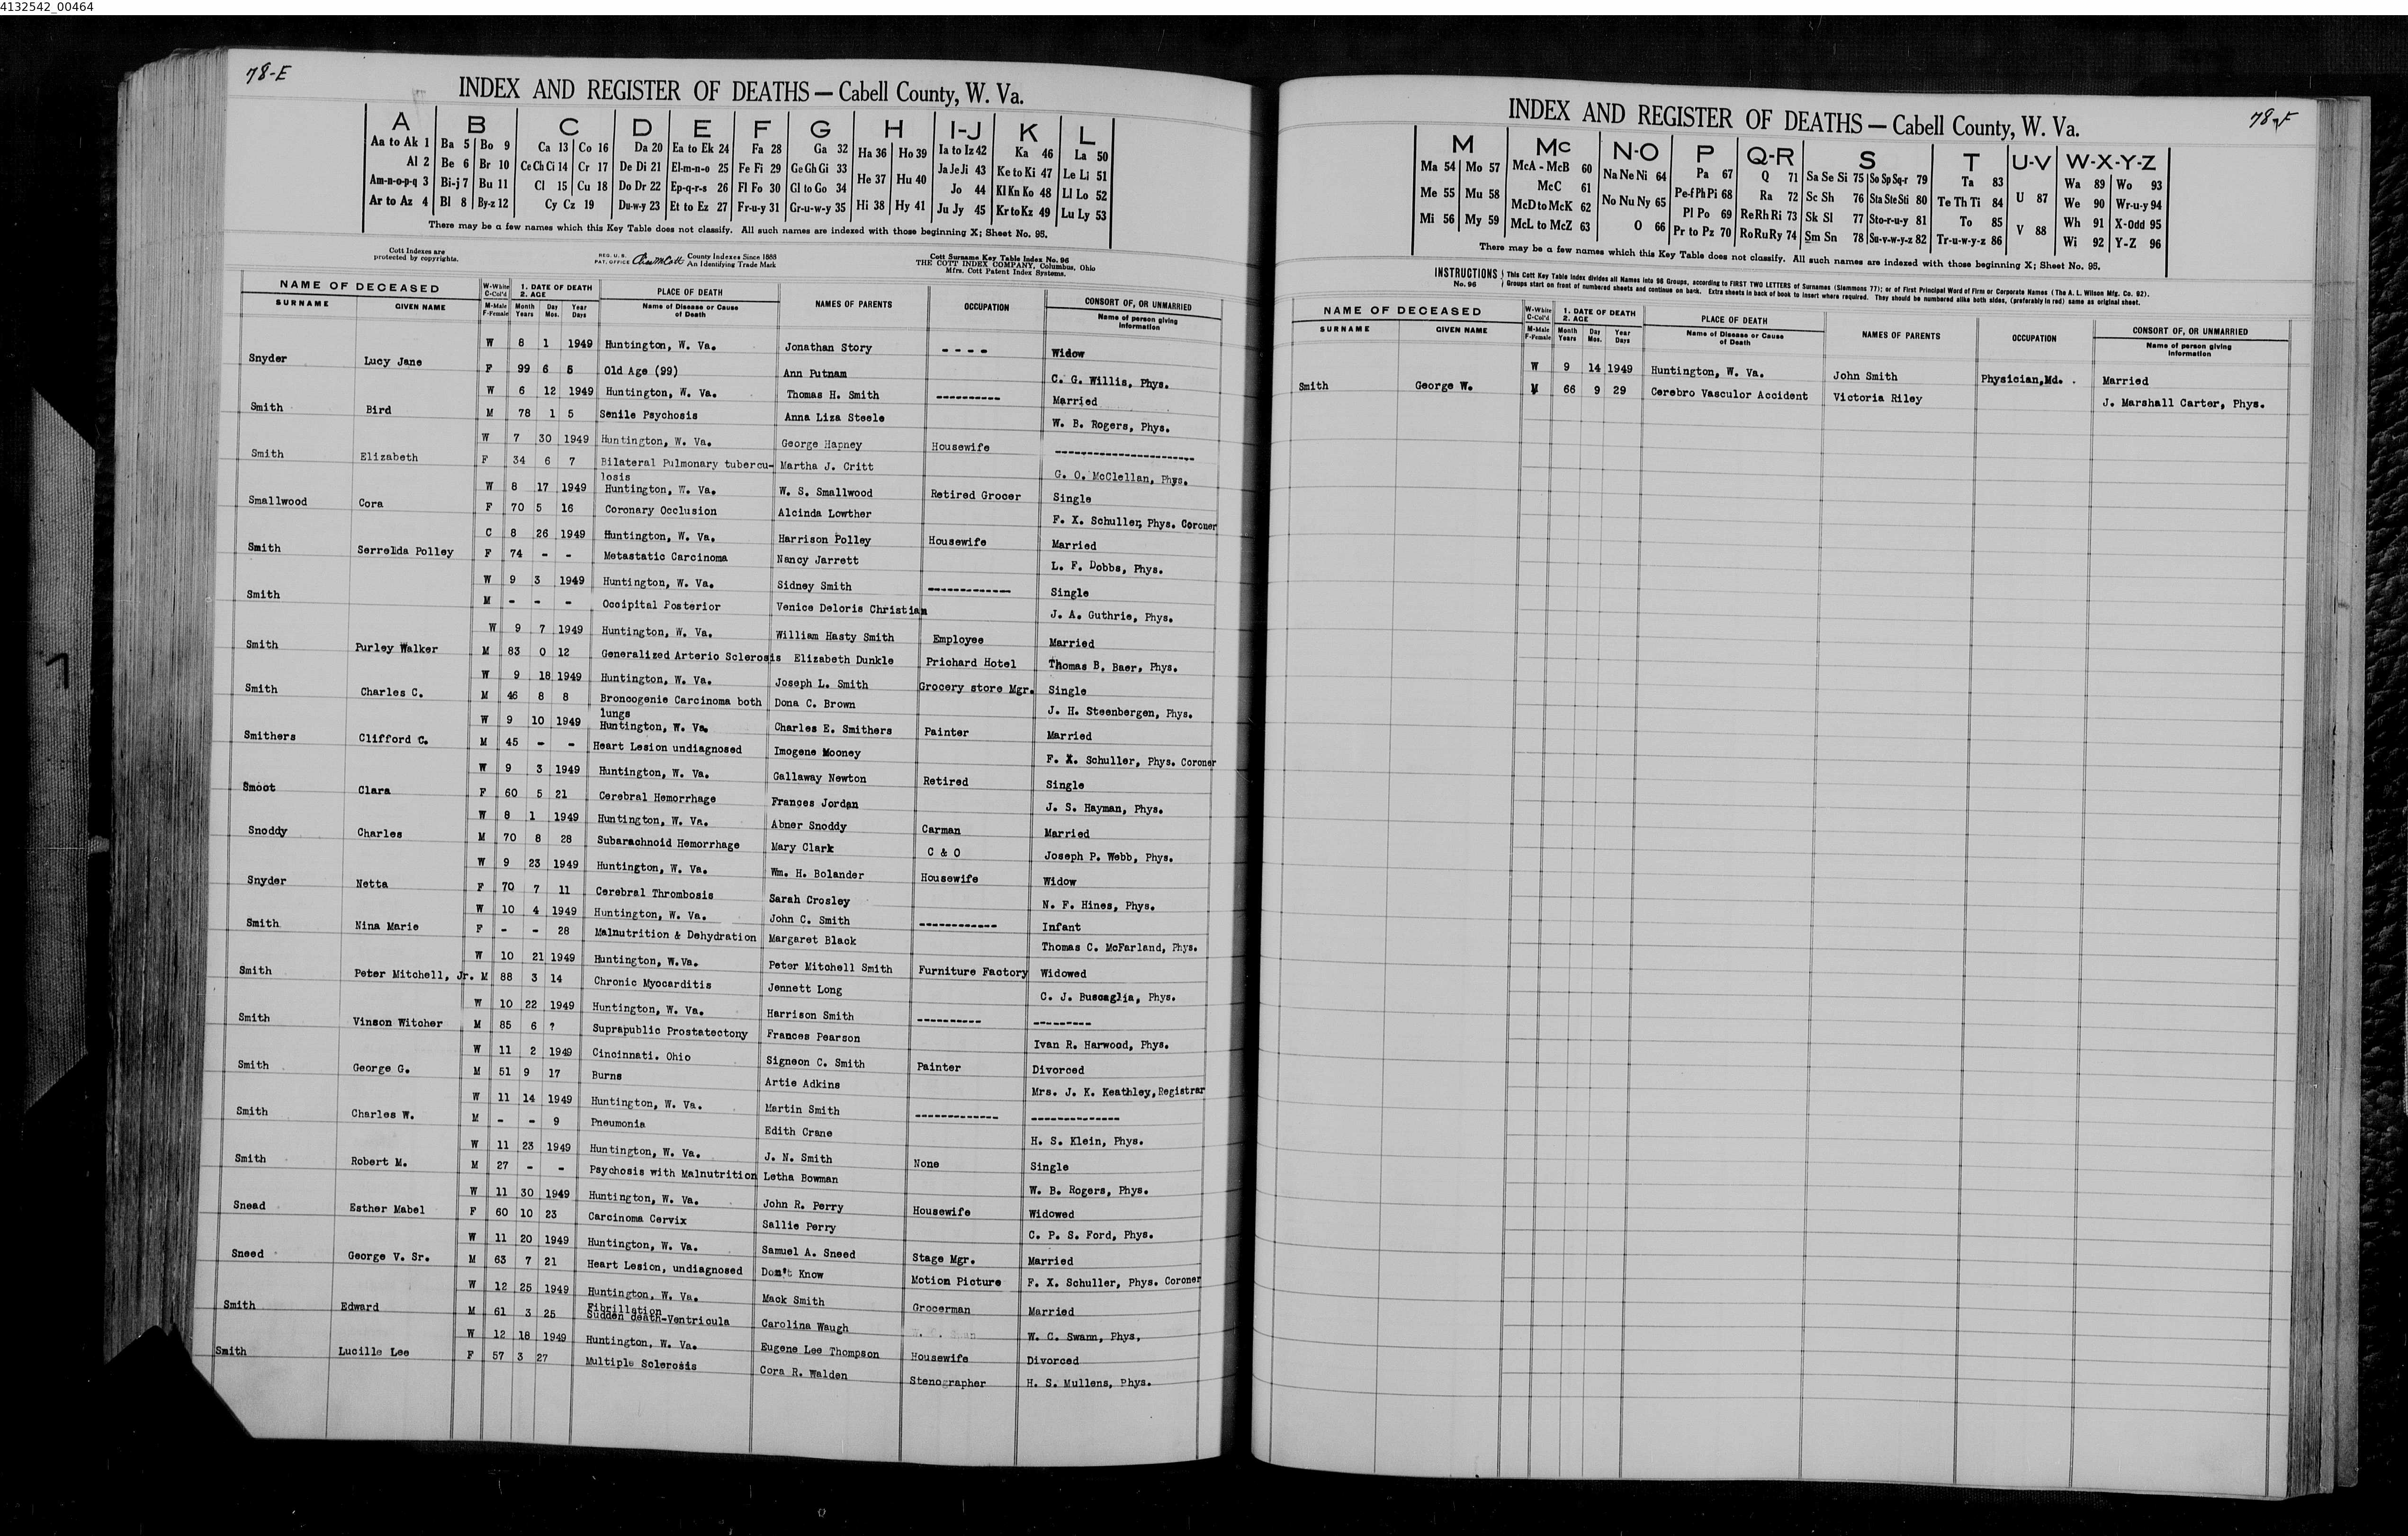 4132542_00464
78-E
INDEX AND REGISTER OF DEATHS — Cabell County, W. Va.
A B C D E F G H I-J K L
Aa to Ak 1 Ba 5 Bo 9 Ca 13 Co 16 Da 20 Ea to Ek 24 Fa 28 Ga 32 Ha 36 Ho 39 Ia to Iz 42 Ka 46 La 50
Al 2 Be 6 Br 10 Ce Ch Ci 14 Cr 17 De Di 21 El-m-n-o 25 Fe Fi 29 Ge Gh Gi 33 He 37 Hu 40 Ja Je Ji 43 Ke to Ki 47 Le Li 51
Am-n-o-p-q 3 Bi-j 7 Bu 11 Cl 15 Cu 18 Do Dr 22 Ep-q-r-s 26 Fl Fo 30 Gl to Go 34 Jo 44 Kl Kn Ko 48 Ll Lo 52
Ar to Az 4 Bl 8 By-z 12 Cy Cz 19 Du-w-y 23 Et to Ez 27 Fr-u-y 31 Gr-u-w-y 35 Hi 38 Hy 41 Ju Jy 45 Kr to Kz 49 Lu Ly 53
There may be a few names which this Key Table does not classify. All such names are indexed with those beginning X; Sheet No. 95.
Cott Indexes are protected by copyrights.
REG. U. S. PAT. OFFICE County Indexes Since 1888 An Identifying Trade Mark
Cott Surname Key Table Index No. 96
THE COTT INDEX COMPANY, Columbus, Ohio
Mfrs. Cott Patent Index Systems.
NAME OF DECEASED W-White C-Col'd 1. DATE OF DEATH 2. AGE PLACE OF DEATH NAMES OF PARENTS OCCUPATION CONSORT OF, OR UNMARRIED
SURNAME GIVEN NAME M-Male F-Female Month Years Day Mos. Year Days Name of Disease or Cause of Death Name of person giving Information
W 8 1 1949 Huntington, W. Va. Jonathan Story - - - - Widow
Snyder Lucy Jane F 99 6 5 Old Age (99) Ann Putnam C. G. Willis, Phys.
W 6 12 1949 Huntington, W. Va. Thomas H. Smith ---------- Married
Smith Bird M 78 1 5 Senile Psychosis Anna Liza Steele W. B. Rogers, Phys.
W 7 30 1949 Huntington, W. Va. George Hapney Housewife ----------------------
Smith Elizabeth F 34 6 7 Bilateral Pulmonary tubercu- Martha J. Critt G. O. McClellan, Phys.
losis
W 8 17 1949 Huntington, W. Va. W. S. Smallwood Retired Grocer Single
Smallwood Cora F 70 5 16 Coronary Occlusion Alcinda Lowther F. X. Schuller, Phys. Coroner
C 8 26 1949 Huntington, W. Va. Harrison Polley Housewife Married
Smith Serrelda Polley F 74 - - Metastatic Carcinoma Nancy Jarrett L. F. Dobbs, Phys.
W 9 3 1949 Huntington, W. Va. Sidney Smith ------------- Single
Smith M - - - Occipital Posterior Venice Deloris Christian J. A. Guthrie, Phys.
W 9 7 1949 Huntington, W. Va. William Hasty Smith Employee Married
Smith Purley Walker M 83 0 12 Generalized Arterio Sclerosis Elizabeth Dunkle Prichard Hotel Thomas B. Baer, Phys.
W 9 18 1949 Huntington, W. Va. Joseph L. Smith Grocery store Mgr. Single
Smith Charles C. M 46 8 8 Broncogenie Carcinoma both Dona C. Brown J. H. Steenbergen, Phys.
lungs
W 9 10 1949 Huntington, W. Va. Charles E. Smithers Painter Married
Smithers Clifford C. M 45 - - Heart Lesion undiagnosed Imogene Mooney F. X. Schuller, Phys. Coroner
W 9 3 1949 Huntington, W. Va. Gallaway Newton Retired Single
Smoot Clara F 60 5 21 Cerebral Hemorrhage Frances Jordan J. S. Hayman, Phys.
W 8 1 1949 Huntington, W. Va. Abner Snoddy Carman Married
Snoddy Charles M 70 8 28 Subarachnoid Hemorrhage Mary Clark C & O Joseph P. Webb, Phys.
W 9 23 1949 Huntington, W. Va. Wm. H. Bolander Housewife Widow
Snyder Netta F 70 7 11 Cerebral Thrombosis Sarah Crosley N. F. Hines, Phys.
W 10 4 1949 Huntington, W. Va. John C. Smith ------------ Infant
Smith Nina Marie F - - 28 Malnutrition & Dehydration Margaret Black Thomas C. McFarland, Phys.
W 10 21 1949 Huntington, W.Va. Peter Mitchell Smith Furniture Factory Widowed
Smith Peter Mitchell, Jr. M 88 3 14 Chronic Myocarditis Jennett Long C. J. Buscaglia, Phys.
W 10 22 1949 Huntington, W. Va. Harrison Smith ---------- ---------
Smith Vinson Witcher M 85 6 ? Suprapublic Prostatectony Frances Pearson Ivan R. Harwood, Phys.
W 11 2 1949 Cincinnati. Ohio Signeon C. Smith Painter Divorced
Smith George G. M 51 9 17 Burns Artie Adkins Mrs. J. K. Keathley, Registrar
W 11 14 1949 Huntington, W. Va. Martin Smith ------------- --------------
Smith Charles W. M - - 9 Pneumonia Edith Crane H. S. Klein, Phys.
W 11 23 1949 Huntington, W. Va. J. N. Smith None Single
Smith Robert M. M 27 - - Psychosis with Malnutrition Letha Bowman W. B. Rogers, Phys.
W 11 30 1949 Huntington, W. Va. John R. Perry Housewife Widowed
Snead Esther Mabel F 60 10 23 Carcinoma Cervix Sallie Perry C. P. S. Ford, Phys.
W 11 20 1949 Huntington, W. Va. Samuel A. Sneed Stage Mgr. Married
Sneed George V. Sr. M 63 7 21 Heart Lesion, undiagnosed Don't Know Motion Picture F. X. Schuller, Phys. Coroner
W 12 25 1949 Huntington, W. Va. Mack Smith Grocerman Married
Fibrillation
Smith Edward M 61 3 25 Sudden death-Ventricula Carolina Waugh W. C. Swann, Phys.
W 12 18 1949 Huntington, W. Va. Eugene Lee Thompson Housewife Divorced
Smith Lucille Lee F 57 3 27 Multiple Sclerosis Cora R. Walden Stenographer H. S. Mullens, Phys.
78-F
INDEX AND REGISTER OF DEATHS — Cabell County, W. Va.
M Mc N-O P Q-R S T U-V W-X-Y-Z
Ma 54 Mo 57 McA - McB 60 Na Ne Ni 64 Pa 67 Q 71 Sa Se Si 75 So Sp Sq-r 79 Ta 83 U 87 Wa 89 Wo 93
Me 55 Mu 58 McC 61 No Nu Ny 65 Pe-f Ph Pi 68 Ra 72 Sc Sh 76 Sta Ste Sti 80 Te Th Ti 84 We 90 Wr-u-y 94
Mi 56 My 59 McD to McK 62 O 66 Pl Po 69 Re Rh Ri 73 Sk Sl 77 Sto-r-u-y 81 To 85 V 88 Wh 91 X-Odd 95
McL to McZ 63 Pr to Pz 70 Ro Ru Ry 74 Sm Sn 78 Su-v-w-y-z 82 Tr-u-w-y-z 86 Wi 92 Y-Z 96
There may be a few names which this Key Table does not classify. All such names are indexed with those beginning X; Sheet No. 95.
INSTRUCTIONS No. 96 This Cott Key Table Index divides all Names into 96 Groups, according to FIRST TWO LETTERS of Surnames (Slemmons 77); or of First Principal Word of Firm or Corporate Names (The A. L. Wilson Mfg. Co. 92).
Groups start on front of numbered sheets and continue on back. Extra sheets in back of book to insert where required. They should be numbered alike both sides, (preferably in red) same as original sheet.
NAME OF DECEASED W-White C-Col'd 1. DATE OF DEATH 2. AGE PLACE OF DEATH NAMES OF PARENTS OCCUPATION CONSORT OF, OR UNMARRIED
SURNAME GIVEN NAME M-Male F-Female Month Years Day Mos. Year Days Name of Disease or Cause of Death Name of person giving Information
W 9 14 1949 Huntington, W. Va. John Smith Physician,Md. . Married
Smith George W. M 66 9 29 Cerebro Vasculor Accident Victoria Riley J. Marshall Carter, Phys.